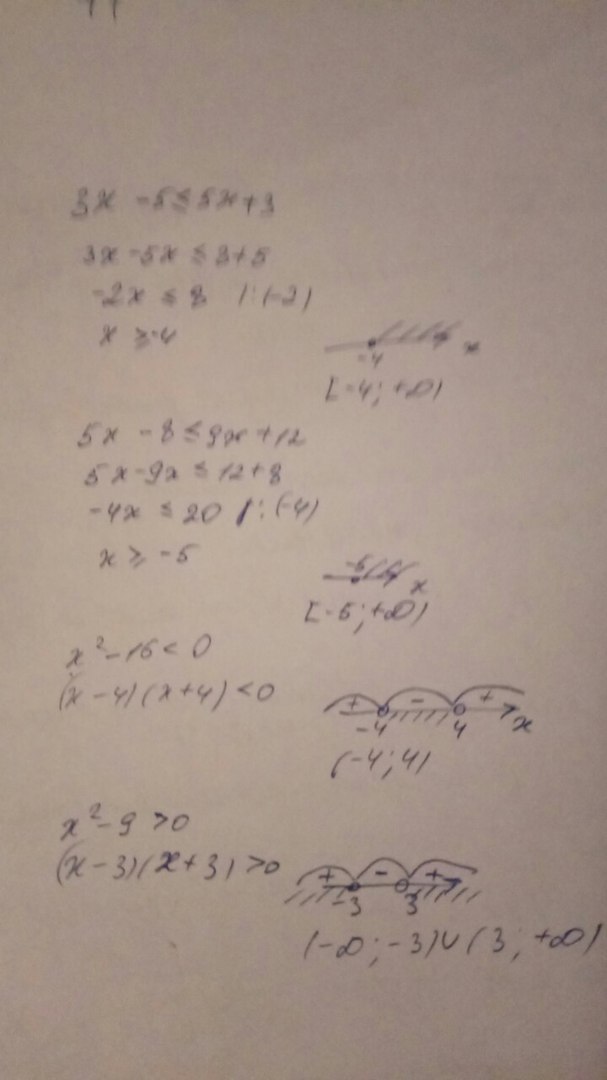 3x - 5 ≤ 5x + 3
3x - 5x ≤ 3 + 5
-2x ≤ 8 |:(-2)
x ≥ -4
-4 x
[-4; +∞)
5x - 8 ≤ 9x + 12
5x - 9x ≤ 12 + 8
-4x ≤ 20 |:(-4)
x ≥ -5
-5 x
[-5; +∞)
x² - 16 < 0
(x - 4)(x + 4) < 0
+ - +
-4 4 x
(-4; 4)
x² - 9 > 0
(x - 3)(x + 3) > 0
+ - +
-3 3
(-∞; -3) ∪ (3; +∞)